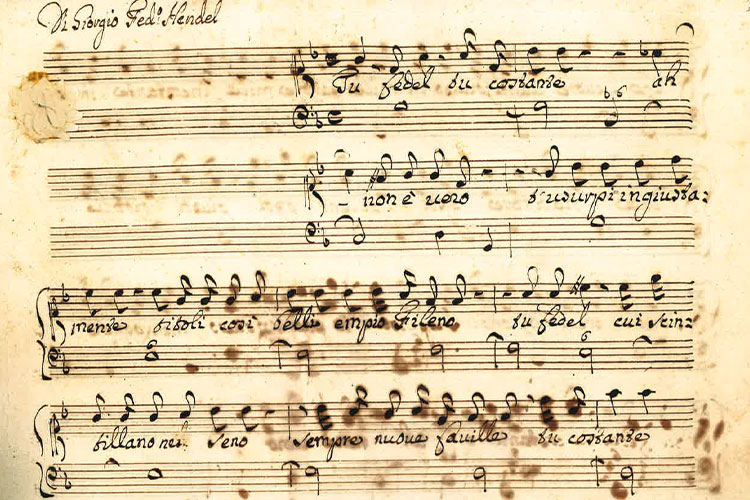 Di Giorgio Fed.º Hendel
Tu fedel tu costante ah
6 6
non è vero t'usurpi ingiusta:
mente titoli così belli empio Fileno tu fedel cui scin:
6 6
tillano nel seno sempre nuove faville tu costante